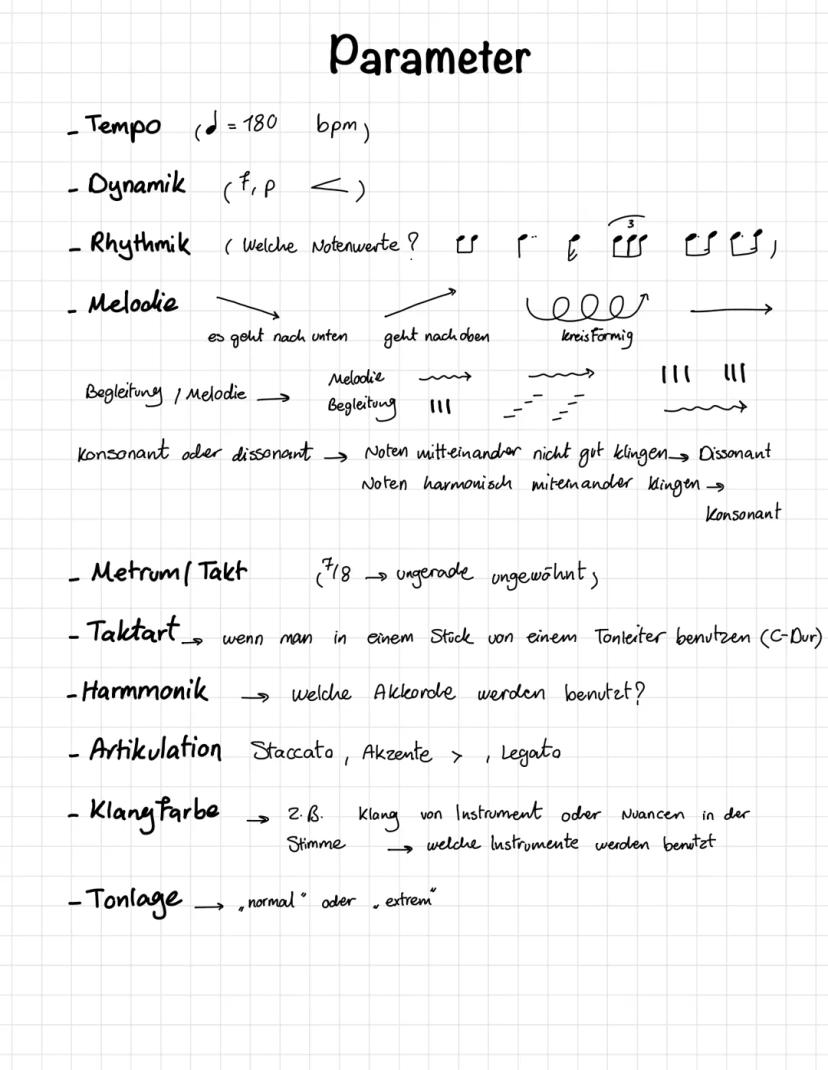 Parameter
- Tempo (♩ = 180 bpm)
- Dynamik (f, p <)
- Rhythmik ( Welche Notenwerte ? 3 )
- Melodie
es geht nach unten geht nach oben kreisförmig
Begleitung / Melodie → Melodie
Begleitung
Konsonant oder dissonant → Noten mitteinander nicht gut klingen → Dissonant
Noten harmonisch miteinander klingen →
Konsonant
- Metrum / Takt (7/8 → ungerade ungewöhnt)
- Taktart → wenn man in einem Stück von einem Tonleiter benutzen (C-Dur)
- Harmmonik → welche Akkorde werden benutzt?
- Artikulation Staccato, Akzente >, Legato
- Klangfarbe → z.B. Klang von Instrument oder Nuancen in der
Stimme → welche Instrumente werden benutzt
- Tonlage → „normal“ oder „extrem“